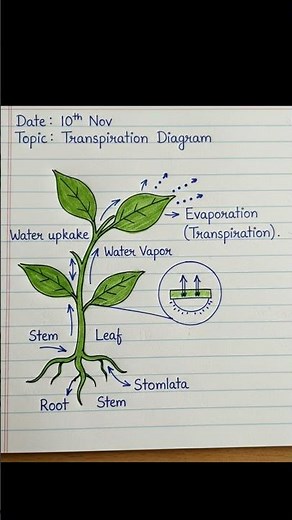 Date: 10th Nov
Topic: Transpiration Diagram
Evaporation
(Transpiration).
Water upkake
Water Vapor
Stem
Leaf
Stomlata
Root
Stem